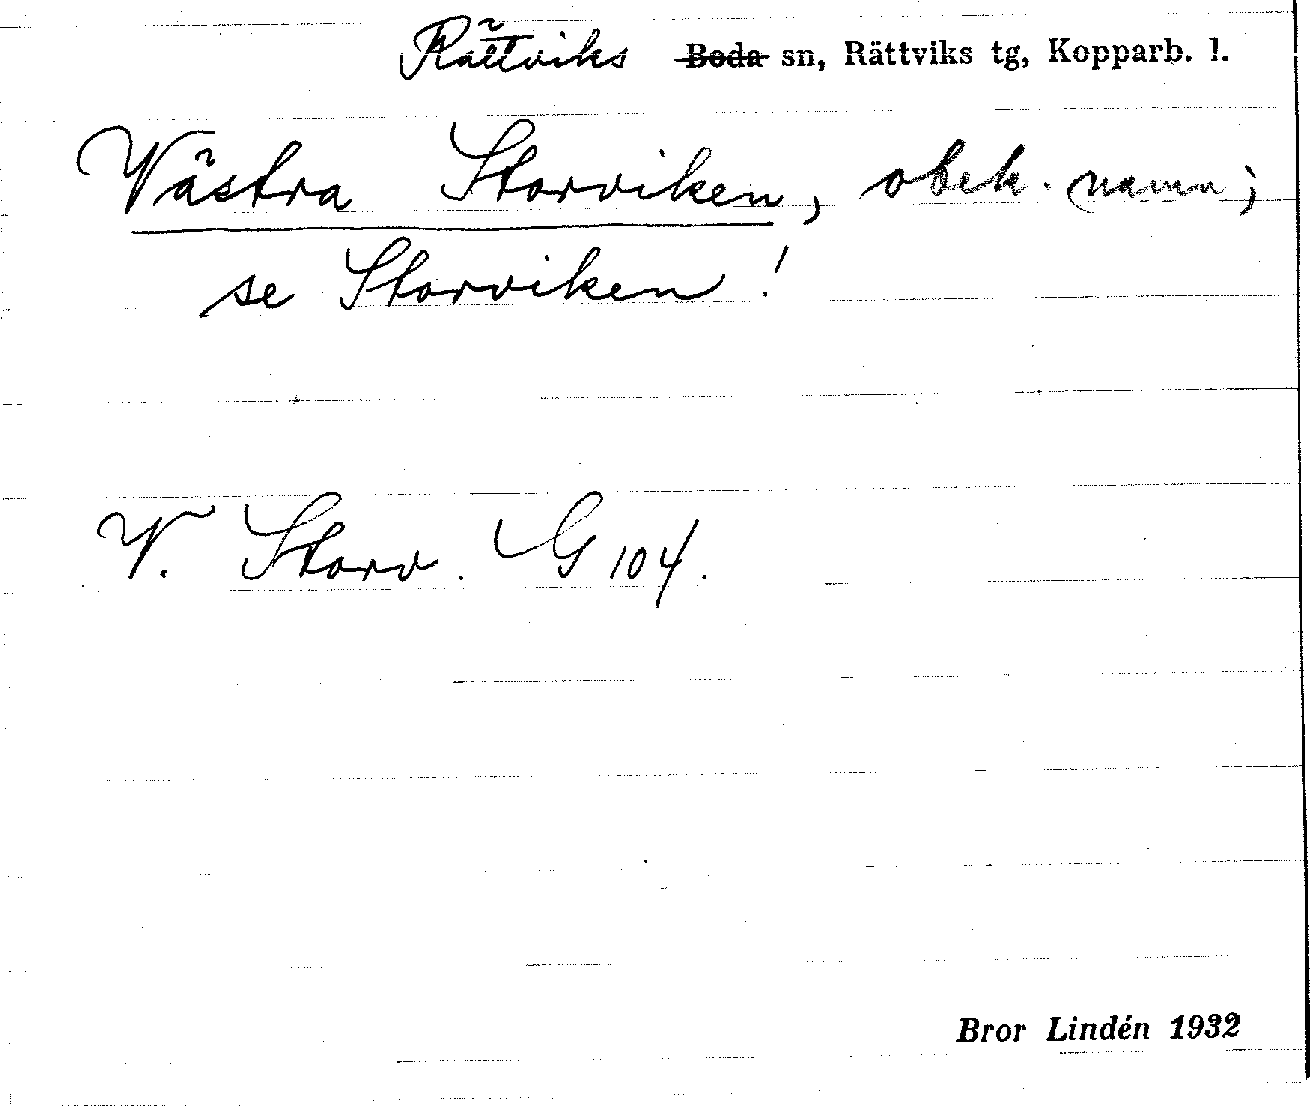 Rättviks Boda sn, Rättviks tg, Kopparb. l.
Västra Storviken, obek. namn;
se Storviken!
V. Storv. G 104.
Bror Lindén 1932